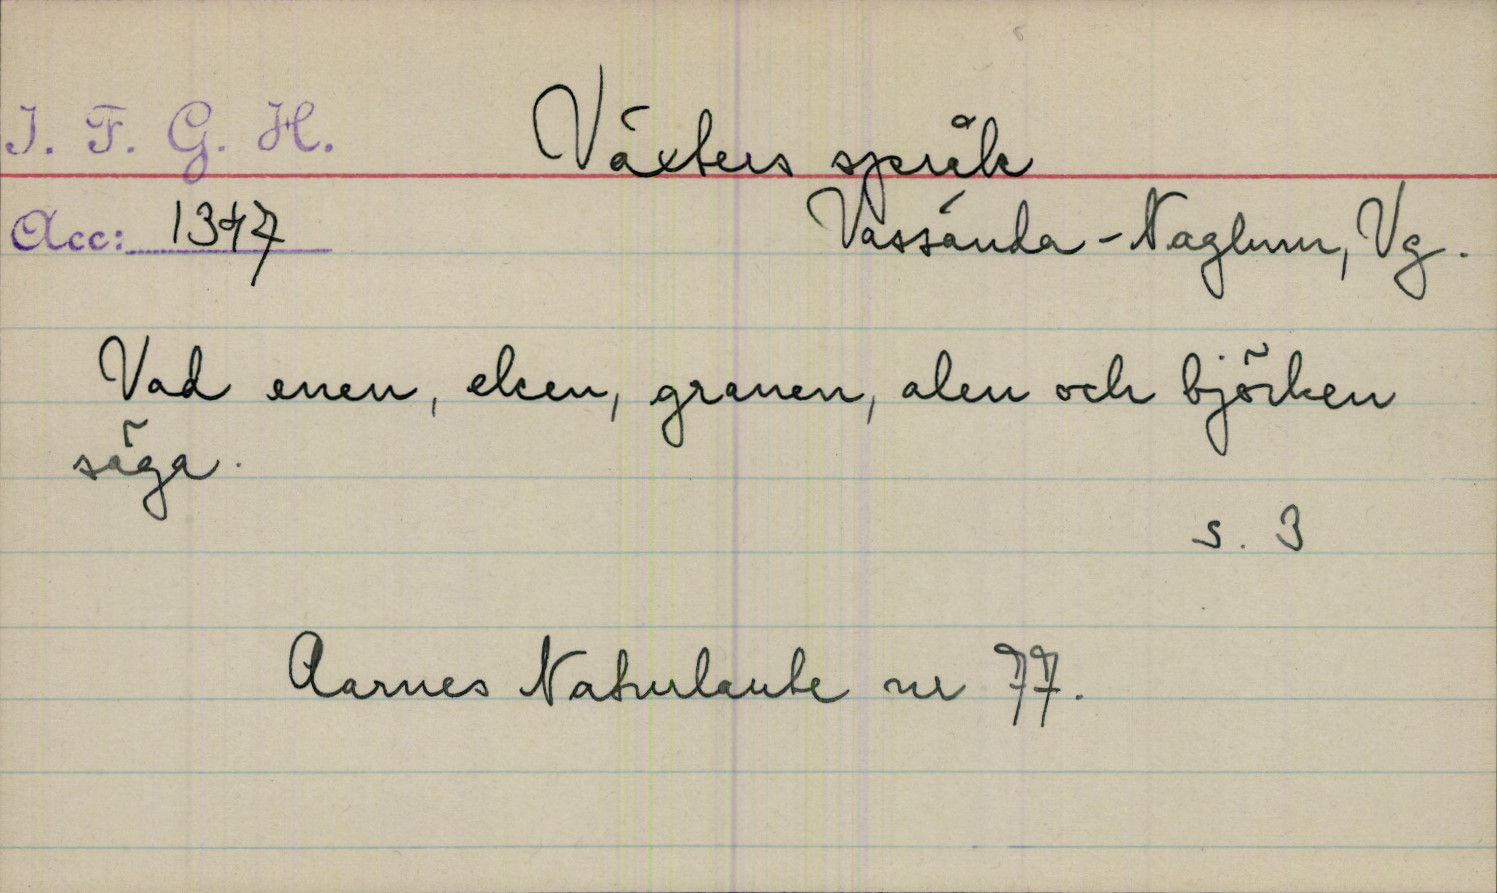 I. F. G. H.
Växters språk
Acc: 1347
Vassända-Naglum, Vg.
Vad enen, eken, granen, alen och björken
säga.
s. 3
Aarnes Naturlaute nr 77.